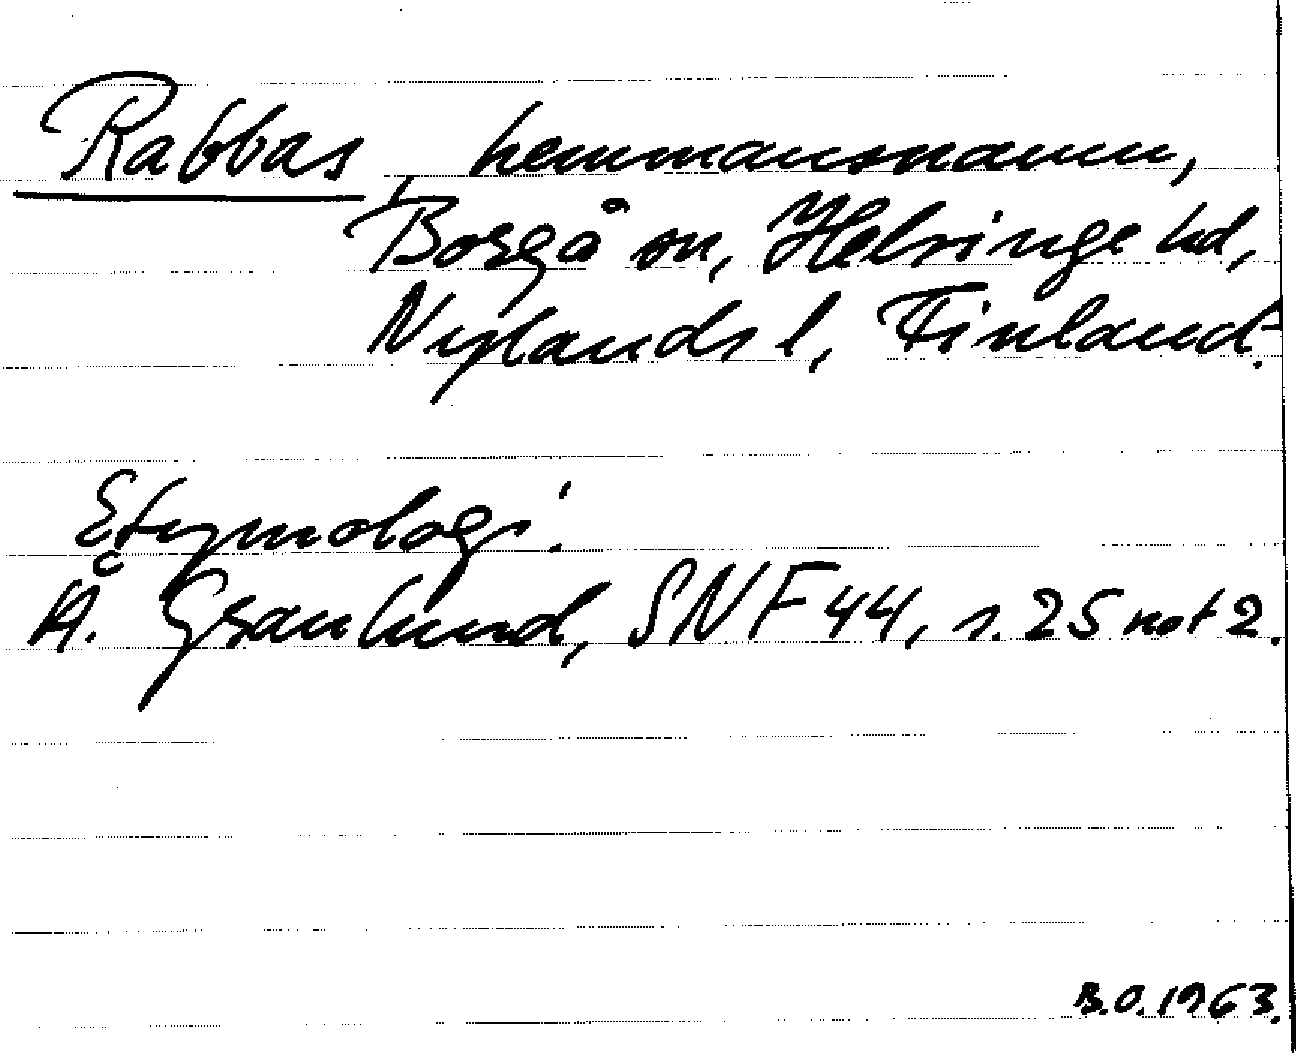 Rabbas, hemmansnamn,
Borgå sn, Helsinge hd,
Nylands l, Finland.
Etymologi:
Å. Granlund, SNF 44, s. 25 not 2.
B.O. 1963.